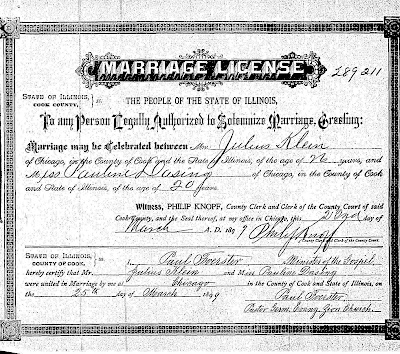 MARRIAGE LICENSE
289211
STATE OF ILLINOIS, } ss.
COOK COUNTY,
THE PEOPLE OF THE STATE OF ILLINOIS,
To any Person Legally Authorized to Solemnize Marriage, Greeting:
Marriage may be Celebrated between Mr. Julius Klein
of Chicago, in the County of Cook and the State of Illinois, of the age of 26 years, and
Miss Pauline Dasing of Chicago, in the County of Cook
and State of Illinois, of the age of 20 years
Witness, PHILIP KNOPF, County Clerk and Clerk of the County Court of said
Cook County, and the Seal thereof, at my office in Chicago, this 22nd day of
March A. D. 1899 Philip Knopf
County Clerk and Clerk of the County Court.
STATE OF ILLINOIS, } ss.
COUNTY OF COOK.
I, Paul Foerster Minister of the Gospel
hereby certify that Mr. Julius Klein and Miss Pauline Dasing
were united in Marriage by me at Chicago in the County of Cook and State of Illinois, on
the 25th day of March 1899
Paul Foerster
Pastor Germ. Evang. Zion Church.